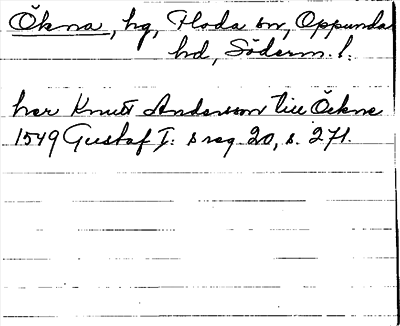 Ökna, hg, Floda sn, Oppunda
hd, Söderm. l.
her Knutt Andersson till Öckne
1549 Gustaf I:s reg 20, s. 271.